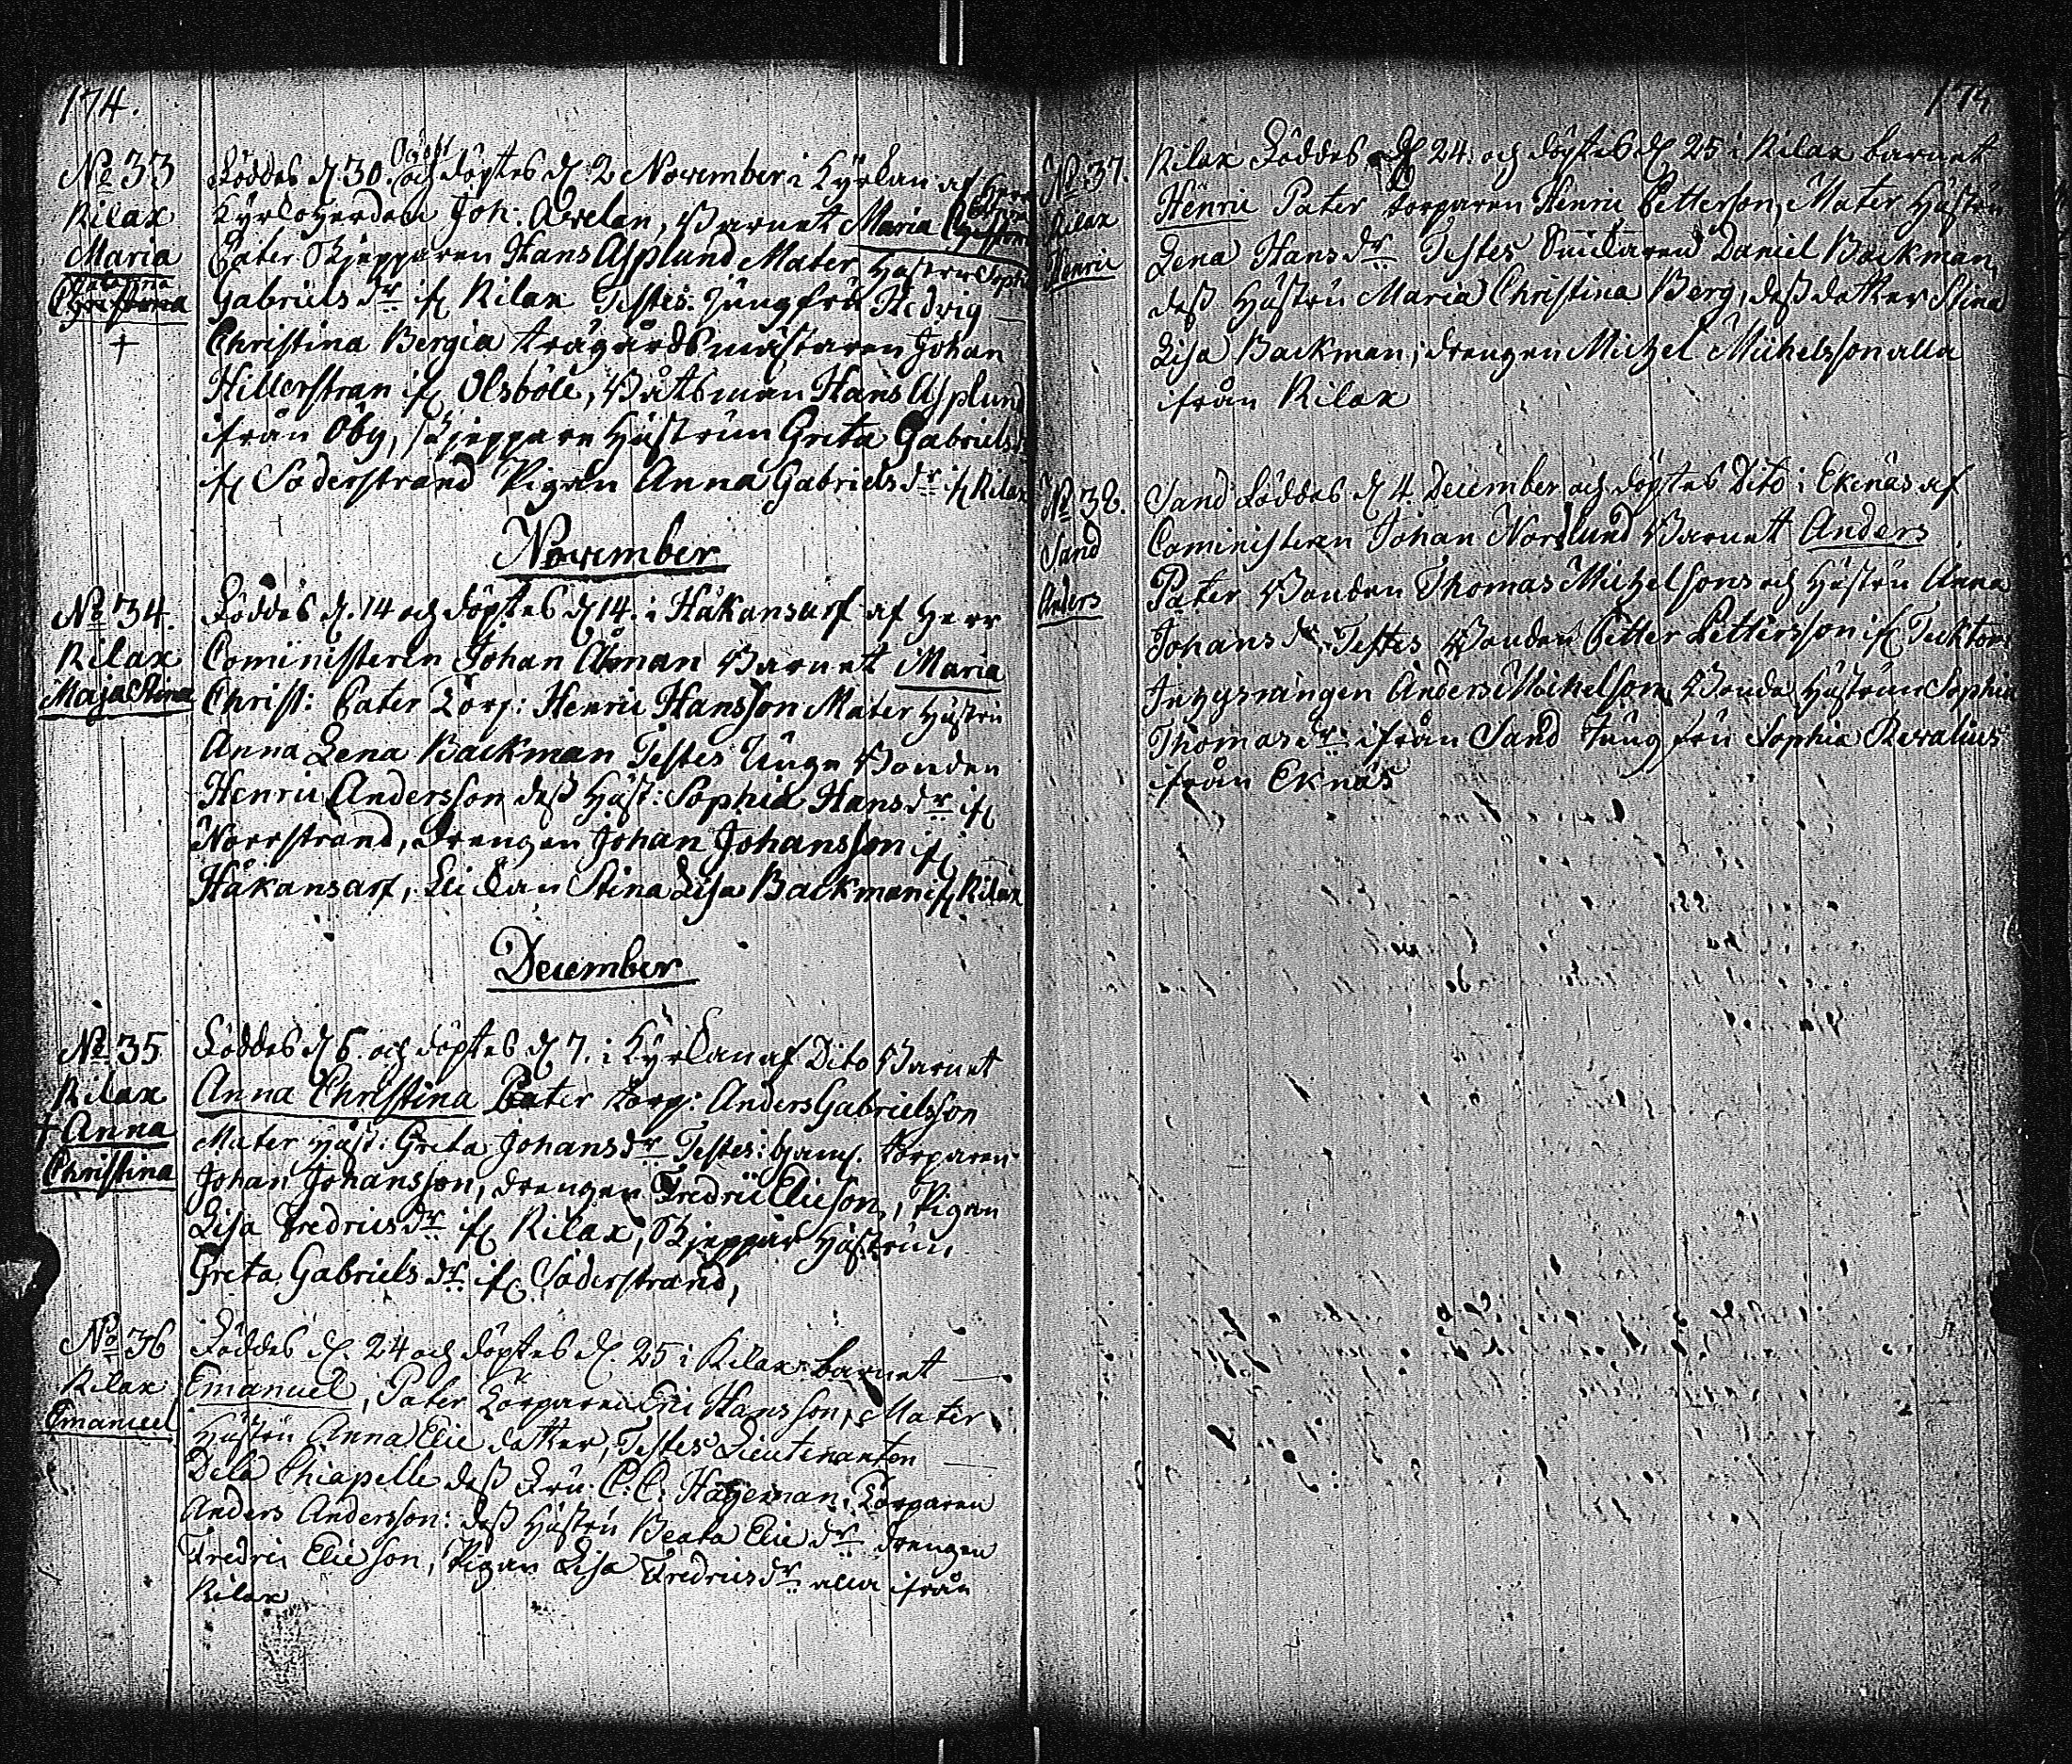 174.
No 33
Rilax
Maria
Christina
+
Föddes d. 30. Octobr och döptes d. 2 November i Kyrkan af Herr
Kyrkoherden Joh: Avelan, Barnet Maria
Pater Skjepparen Hans Asplund Mater Hustrun Sophia
Gabriels dr if Rilax Testes: Jungfru Hedvig
Christina Bergia trägårdsmästaren Johan
Hillerstran if Olsböle, Båtsman Hans Asplund
ifrån Öby, Skjeppare Hustrun Greta Gabriels
if Söderstrand Pigan Anna Gabriels dr if Rilax
November
No 34.
Rilax
Maja Stina
Föddes d. 14 och döptes d 14. i Håkansarf af Herr
Coministeren Johan Åman Barnet Maria
Christ: Pater Torp: Henric Hansson Mater Hustru
Anna Lena Backman Testes Unge Bonden
Henric Andersson dess Hust: Sophia Hans dr if
Norrstrand, drengen Johan Johansson if
Håkansarf, Stina Lisa Backman if Rilax
December
No 35
Rilax
+ Anna
Christina
Föddes d 6. och döptes d 7. i Kyrkan af Dito Barnet
Anna Christina Pater torp: Anders Gabrielsson
Mater Hust: Greta Johans dr Testes: torparen
Johan Johansson, drengen Fredric Elieson, Pigan
Lisa Fredrics dr if Rilax, Skjeppar Hustrun
Greta Gabriels dr if Söderstrand,
No 36
Rilax
Emanuel
Föddes d. 24 och döptes d. 25 i Rilax barnet
Emanuel, Pater Torparen Eric Hansson, Mater
Hustru Anna Elie dotter, Testes Lieutenanten
Dela Chiapelle dess Fru C: C: Hageman, Torparen
Anders Andersson: dess Hustru Beata Elie dr drengen
Fredric Elieson, Pigan Lisa Fredrics dr alla ifrån
Rilax
175
No 37.
Rilax
Henric
Rilax Föddes d 24. och döptes d 25 i Rilax barnet
Henric Pater torparen Henric Petterson, Mater Hustru
Lena Hans dr Testes Daniel Backman,
dess Hustru Maria Christina Berg, dess dotter Stina
Lisa Backman, drengen Michel Michelsson alla
ifrån Rilax
No 38.
Sand
Anders
Sand Föddes d 4. December och döptes Dito i Ekenäs af
Coministern Johan Norlund Barnet Anders
Pater Bonden Thomas Michelsons och Hustru Anna
Johans dr Testes Bonden Petter Pettersson if
Anders Michelsson, Bonde Hustrun Sophia
Thomas dr ifrån Sand Jungfru Sophia
ifrån Eknäs